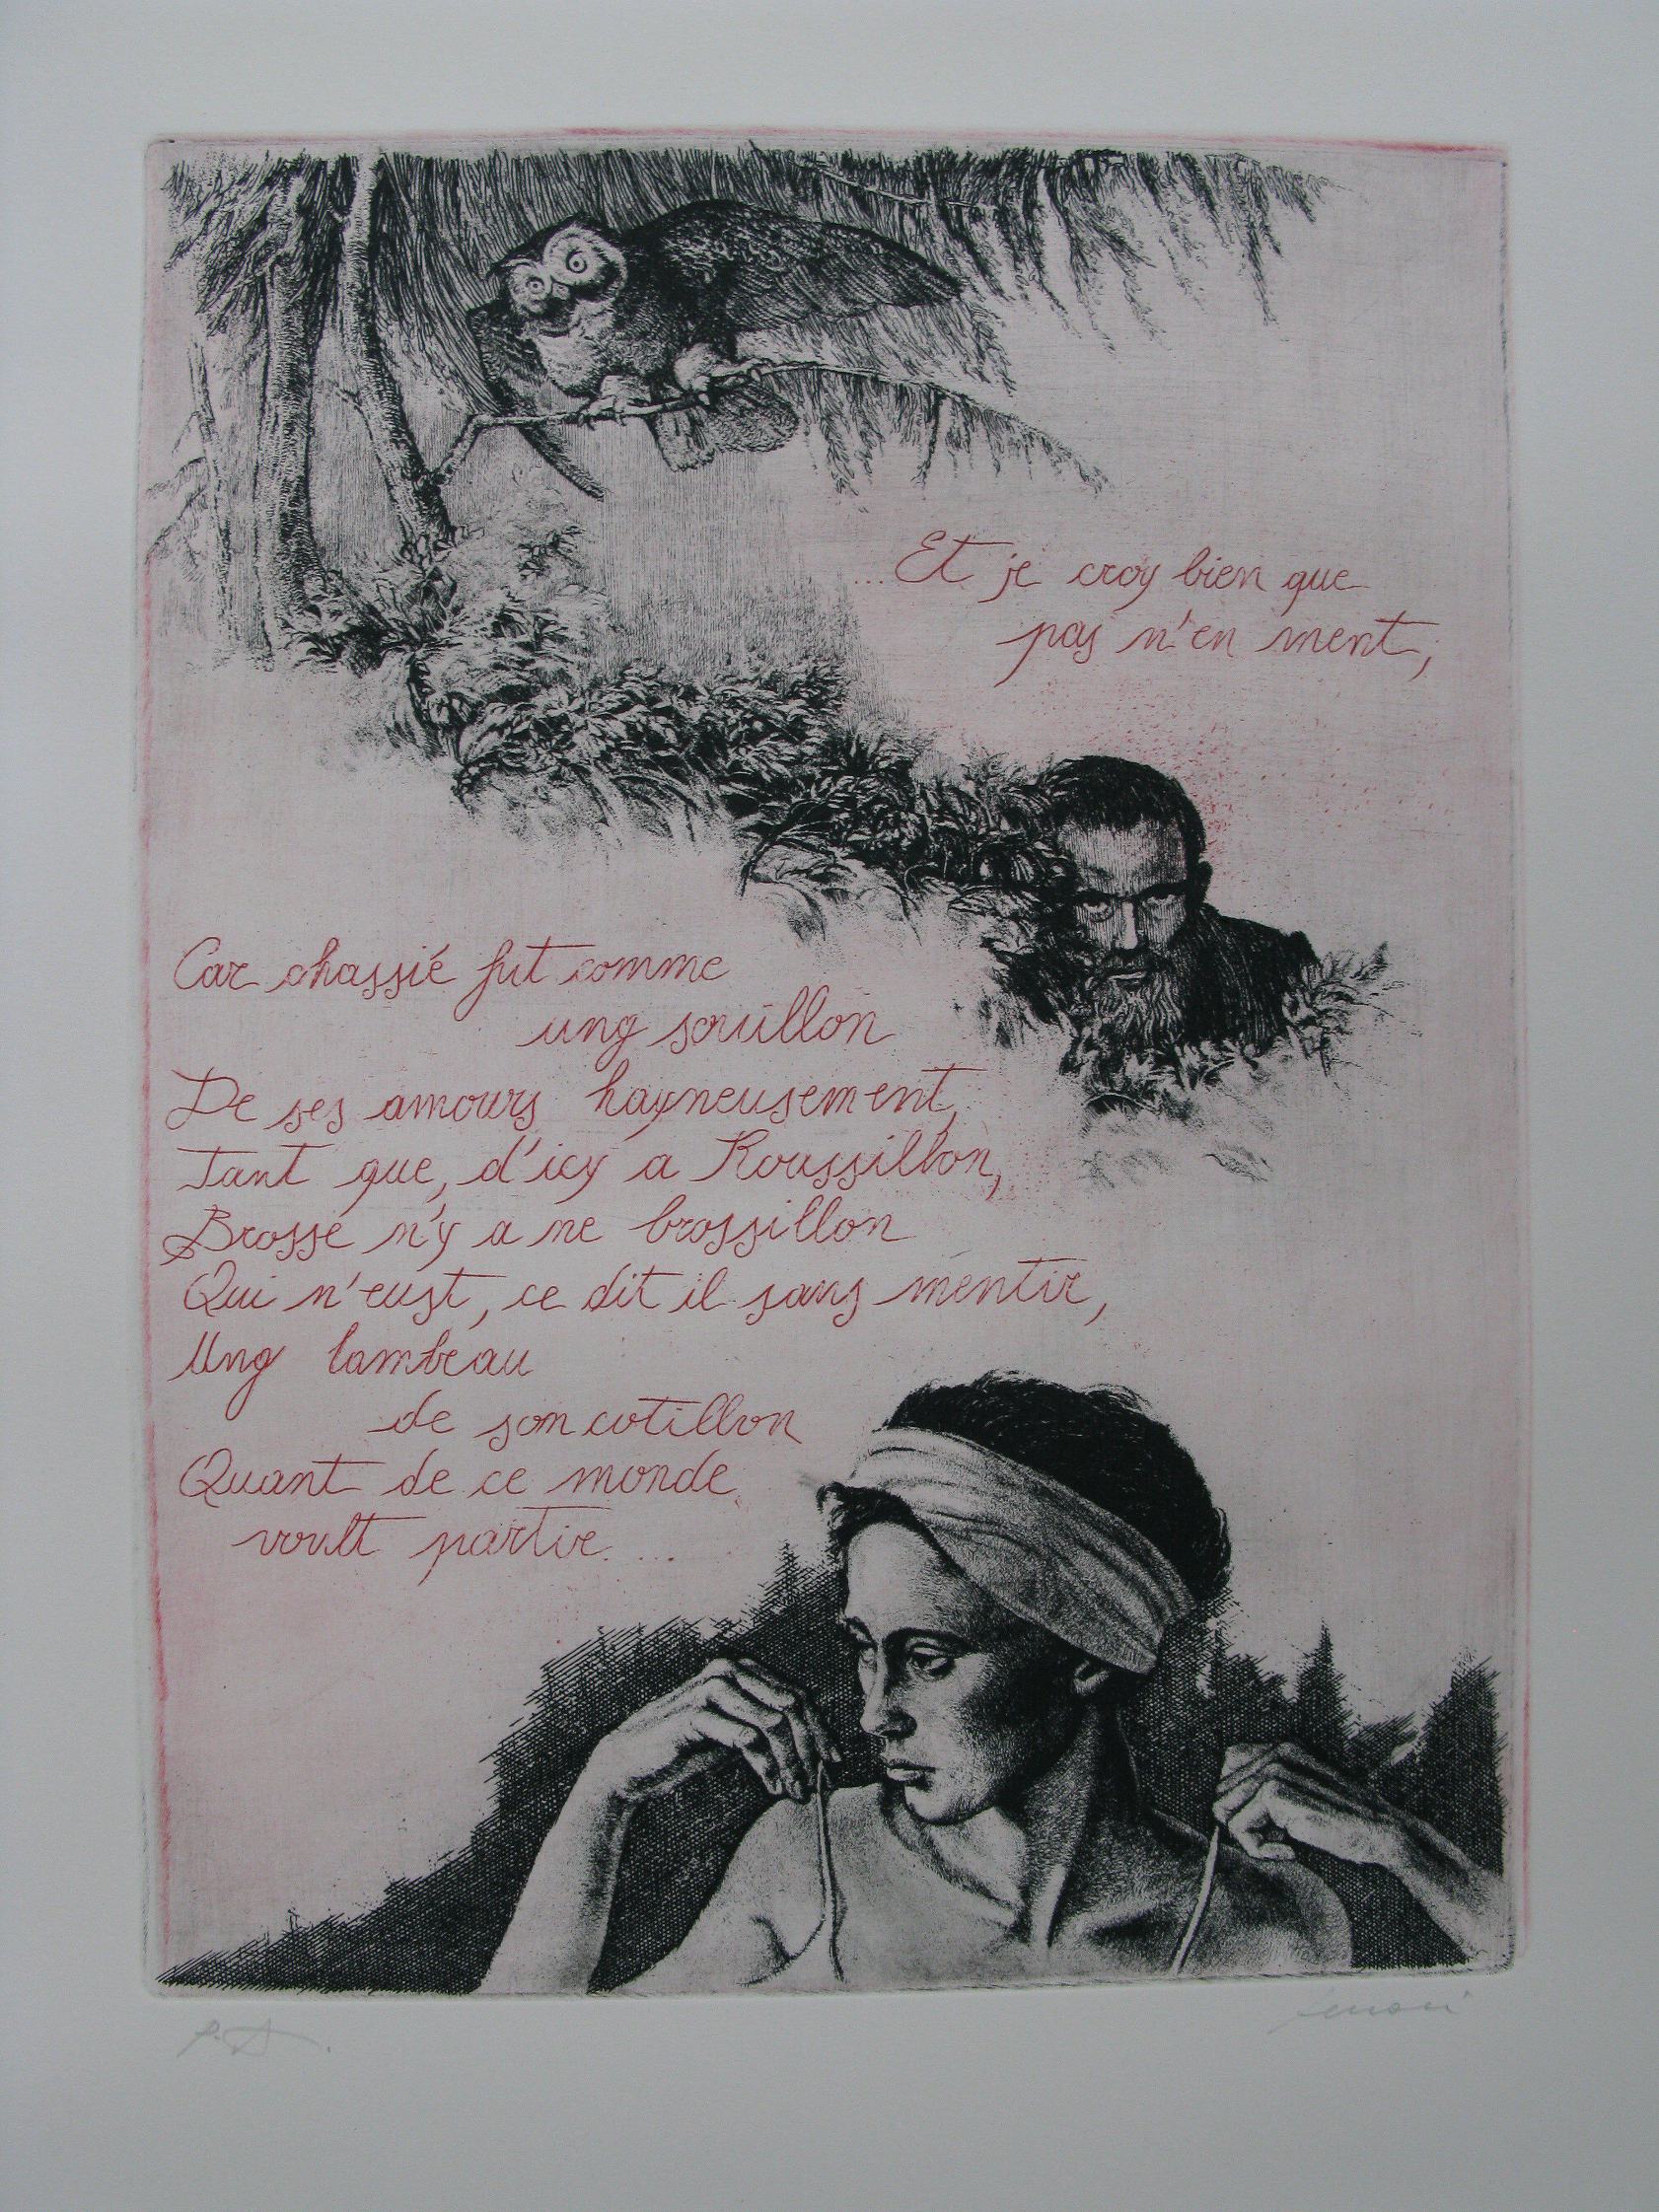 ...Et je croy bien que
pas n'en ment;
Car chassié fut comme
ung souillon
De ses amours hayneusement,
Tant que, d'icy a Roussillon,
Brosse n'y a ne brossillon
Qui n'eust, ce dit il sans mentir,
Ung lambeau
de son cotillon
Quant de ce monde
voult partir....
P.A.